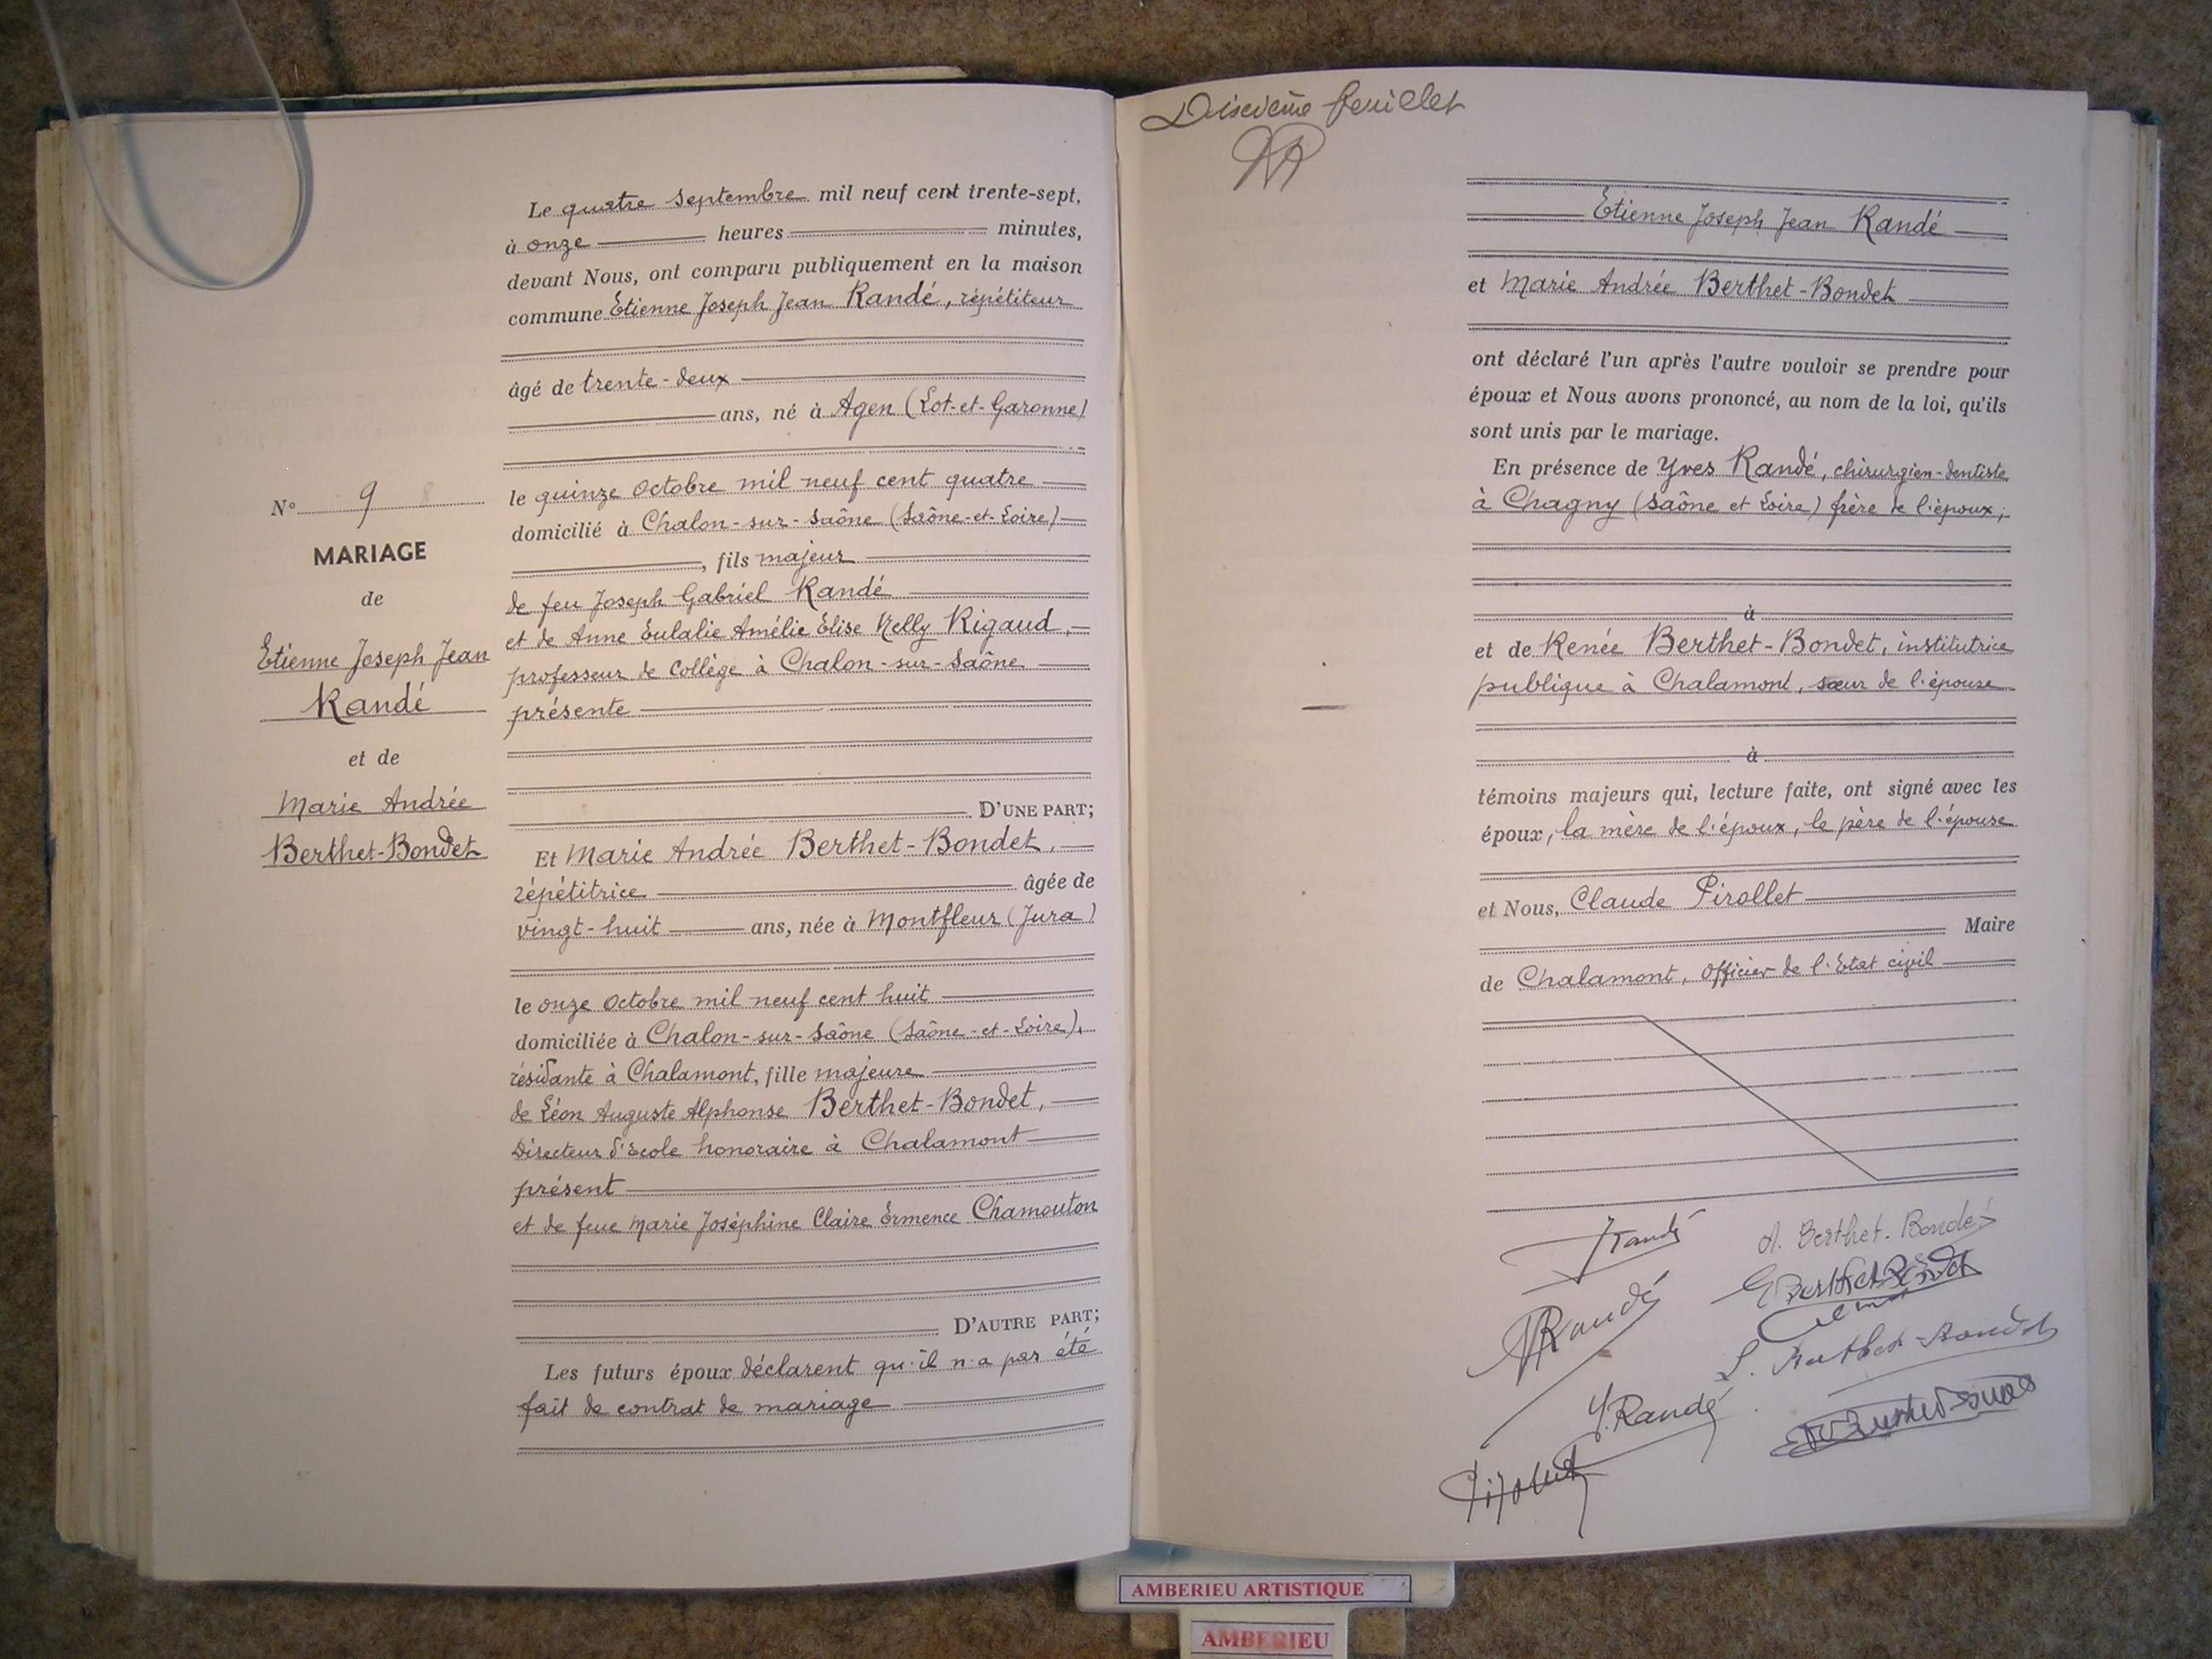 Le quatre Septembre mil neuf cent trente-sept,
à onze heures minutes,
devant Nous, ont comparu publiquement en la maison
commune Etienne Joseph Jean Randé, répétiteur
âgé de trente-deux
ans, né à Agen (Lot-et-Garonne)
le quinze Octobre mil neuf cent quatre
domicilié à Chalon-sur-Saône (Saône-et-Loire)
, fils majeur
de feu Joseph Gabriel Randé
et de Anne Eulalie Amélie Elise Nelly Rigaud,
professeur de Collège à Chalon-sur-Saône
présente
D'UNE PART;
Et Marie Andrée Berthet-Bondet,
répétitrice âgée de
vingt-huit ans, née à Montfleur (Jura)
le onze Octobre mil neuf cent huit
domiciliée à Chalon-sur-Saône (Saône-et-Loire),
résidante à Chalamont, fille majeure
de Léon Auguste Alphonse Berthet-Bondet,
Directeur d'Ecole honoraire à Chalamont
présent
et de feue Marie Joséphine Claire Ermence Chamouton
D'AUTRE PART;
Les futurs époux déclarent qu'il n'a pas été
fait de contrat de mariage
N° 9 8
MARIAGE
de
Etienne Joseph Jean
Randé
et de
Marie Andrée
Berthet-Bondet
feuillet
Etienne Joseph Jean Randé
et Marie Andrée Berthet-Bondet
ont déclaré l'un après l'autre vouloir se prendre pour
époux et Nous avons prononcé, au nom de la loi, qu'ils
sont unis par le mariage.
En présence de Yves Randé, chirurgien-dentiste
à Chagny (Saône et Loire) frère de l'époux;
à
et de Renée Berthet-Bondet, institutrice
publique à Chalamont, sœur de l'épouse
à
témoins majeurs qui, lecture faite, ont signé avec les
époux, la mère de l'époux, le père de l'épouse
et Nous, Claude Pirollet
Maire
de Chalamont, Officier de l'Etat civil
Randé
A. Berthet-Bondet
Randé
L. Berthet-Bondet
Y. Randé
Pirollet
AMBERIEU ARTISTIQUE
AMBERIEU